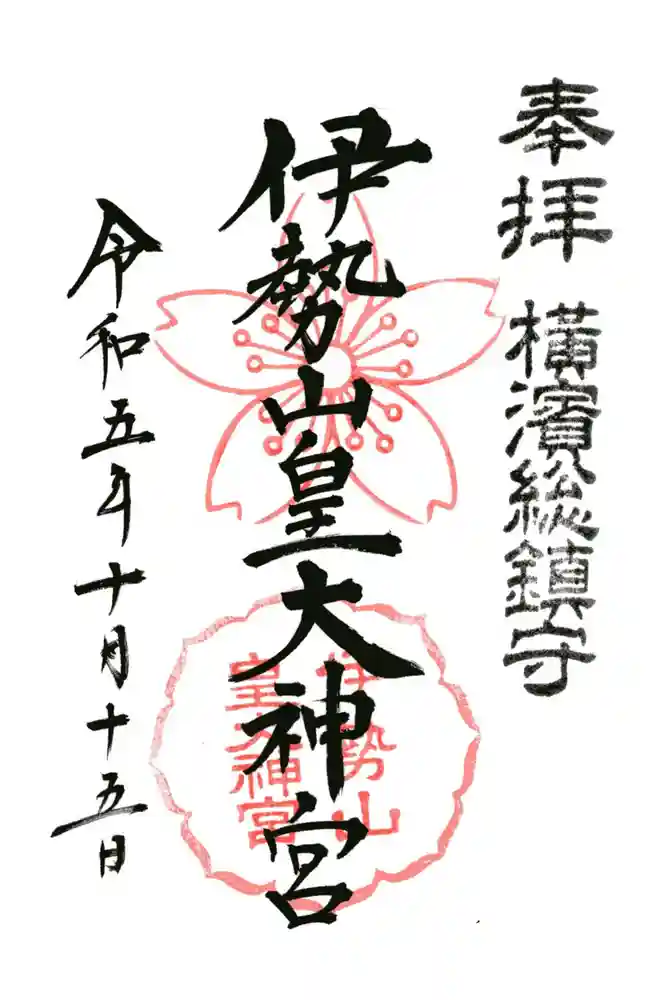 奉拝
横濱総鎮守
伊勢山皇大神宮
伊勢山
皇大神宮
令和五年十月十五日